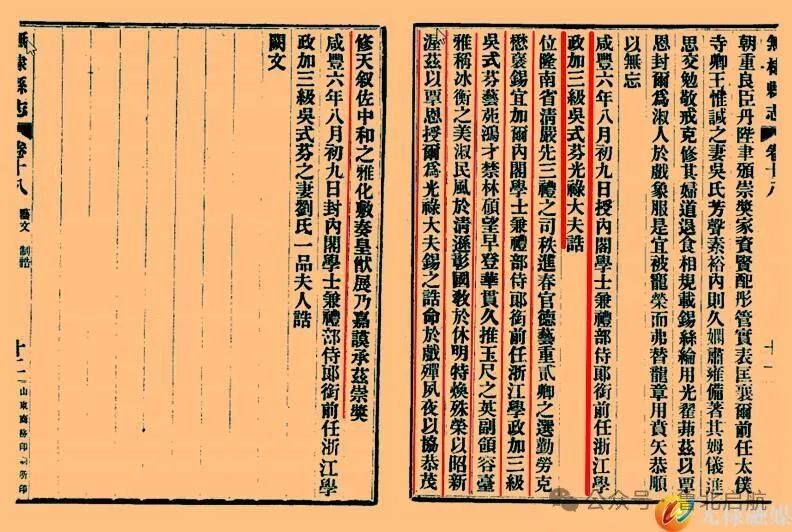 無棣縣志 卷十八
朝重良臣丹陛聿頒崇獎家資賢配彤管實表匡襄爾前任太僕
寺卿王惟誠之妻吳氏芳聲素裕內則久嫻肅雍備著其姆儀進
思交勉敬戒克修其婦道退食相規載錫絲綸用光翟茀茲以覃
恩封爾為淑人於戲象服是宜被寵榮而弗替龍章用賁矢恭順
以無忘
咸豐六年八月初九日授內閣學士兼禮部侍郎銜前任浙江學
政加三級吳式芬光祿大夫誥
位隆南省清嚴先三禮之司秩進春官德藝重貳卿之選勤勞克
懋褒錫宜加爾內閣學士兼禮部侍郎銜前任浙江學政加三級
吳式芬藝苑鴻才禁林碩望早登華貫久推玉尺之英副領容臺
雅稱冰衡之美淑民風於清遜彰國教於休明特煥殊榮以昭新
渥茲以覃恩授爾為光祿大夫錫之誥命於戲殫夙夜以協恭茂
十一
修天敘佐中和之雅化敷奏皇猷展乃嘉謨承茲崇獎
咸豐六年八月初九日封內閣學士兼禮部侍郎銜前任浙江學
政加三級吳式芬之妻劉氏一品夫人誥
闕文
無棣縣志 卷十八 藝文 制誥 十二 山東商務印刷所印
公众号 北启航
无棣融媒